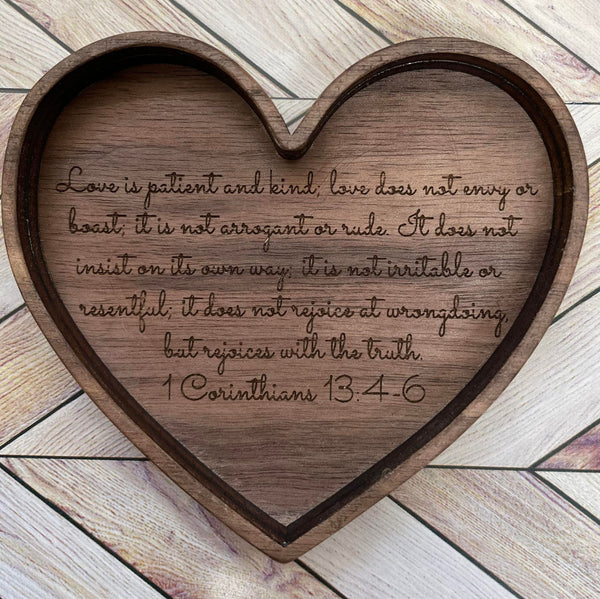 Love is patient and kind; love does not envy or
boast; it is not arrogant or rude. It does not
insist on its own way; it is not irritable or
resentful; it does not rejoice at wrongdoing,
but rejoices with the truth.
1 Corinthians 13:4-6